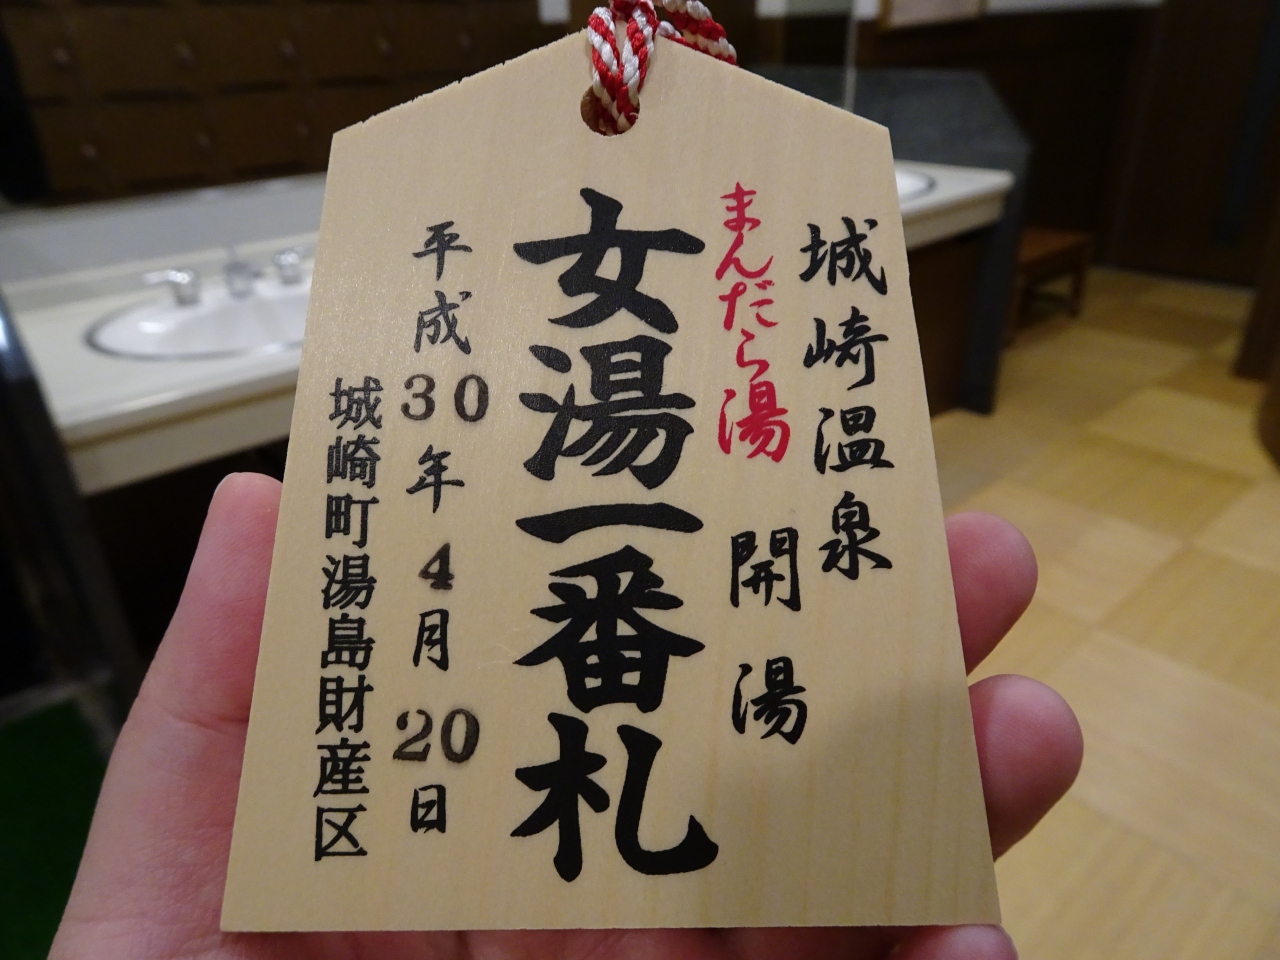 城崎温泉
まんだら湯 開湯
女湯一番札
平成30年4月20日
城崎町湯島財産区